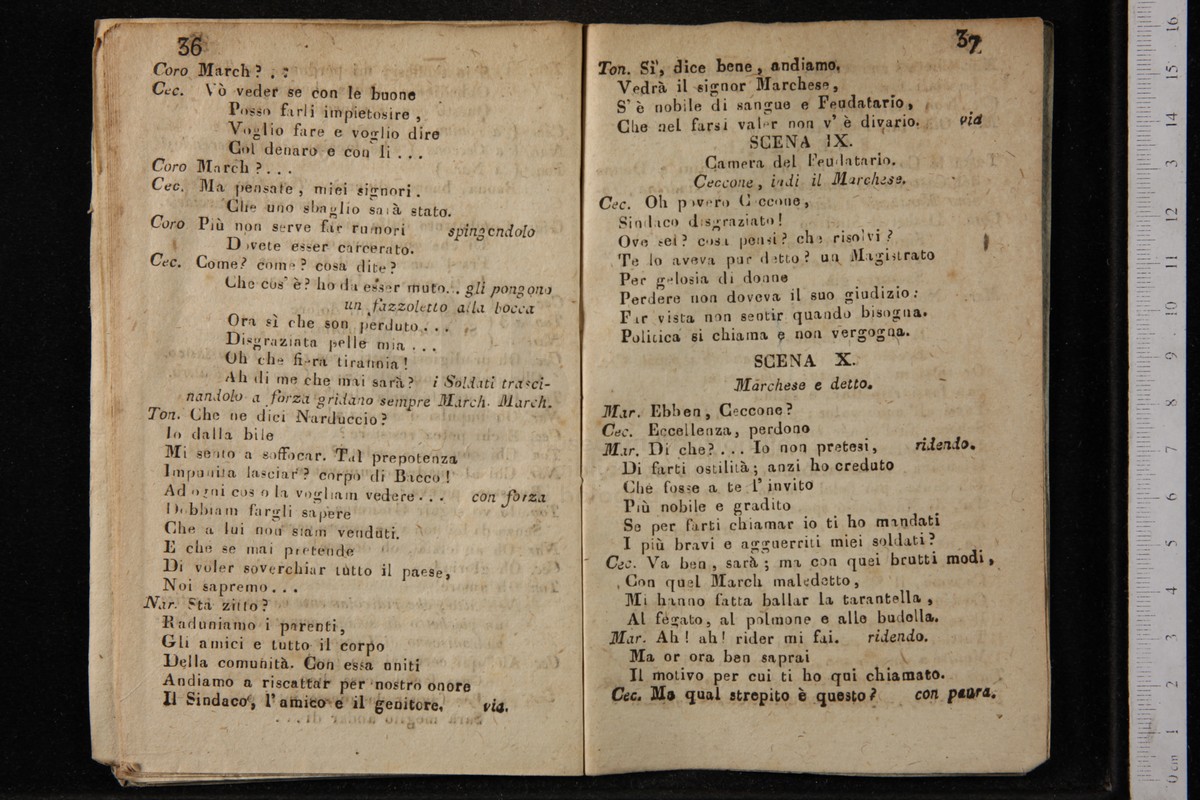 36
Coro March? . :
Cec. Vò veder se con le buone
Posso farli impietosire,
Voglio fare e voglio dire
Col denaro e con li ...
Coro March?...
Cec. Ma pensate, miei signori.
Che uno sbaglio sarà stato.
Coro Più non serve far rumori spingendolo
Dovete esser carcerato.
Cec. Come? come? cosa dite?
Che cos' è? ho da esser muto... gli pongono
un fazzoletto alla bocca
Ora sì che son perduto...
Disgraziata pelle mia ...
Oh che fiera tirannia!
Ah di me che mai sarà? i Soldati trasci-
nandolo a forza gridano sempre March. March.
Ton. Che ne dici Narduccio?
Io dalla bile
Mi sento a soffocar. Tal prepotenza
Impunita lasciar? corpo di Bacco!
Ad ogni cos o la vogliam vedere... con forza
Dobbiam fargli sapere
Che a lui non siam venduti.
E che se mai pretende
Di voler soverchiar tutto il paese,
Noi sapremo...
Nar. Sta zitto?
Raduniamo i parenti,
Gli amici e tutto il corpo
Della comunità. Con essa uniti
Andiamo a riscattar per nostro onore
Il Sindaco, l'amico e il genitore. via.
37
Ton. Si', dice bene, andiamo.
Vedrà il signor Marchese,
S' è nobile di sangue e Feudatario,
Che nel farsi valer non v' è divario. via
SCENA IX.
Camera del Feudatario.
Ceccone, indi il Marchese.
Cec. Oh povero Ceccone,
Sindaco disgraziato!
Ove sei? cosa pensi? che risolvi?
Te lo aveva pur detto? un Magistrato
Per gelosia di donne
Perdere non doveva il suo giudizio:
Far vista non sentir quando bisogna.
Politica si chiama e non vergogna.
SCENA X.
Marchese e detto.
Mar. Ebben, Ceccone?
Cec. Eccellenza, perdono
Mar. Di che?... Io non pretesi, ridendo.
Di farti ostilità; anzi ho creduto
Che fosse a te l' invito
Più nobile e gradito
Se per farti chiamar io ti ho mandati
I più bravi e agguerriti miei soldati?
Cec. Va ben, sarà; ma con quei brutti modi,
Con quel March maledetto,
Mi hanno fatta ballar la tarantella,
Al fegato, al polmone e alle budella.
Mar. Ah! ah! rider mi fai. ridendo.
Ma or ora ben saprai
Il motivo per cui ti ho qui chiamato.
Cec. Ma qual strepito è questo? con paura.